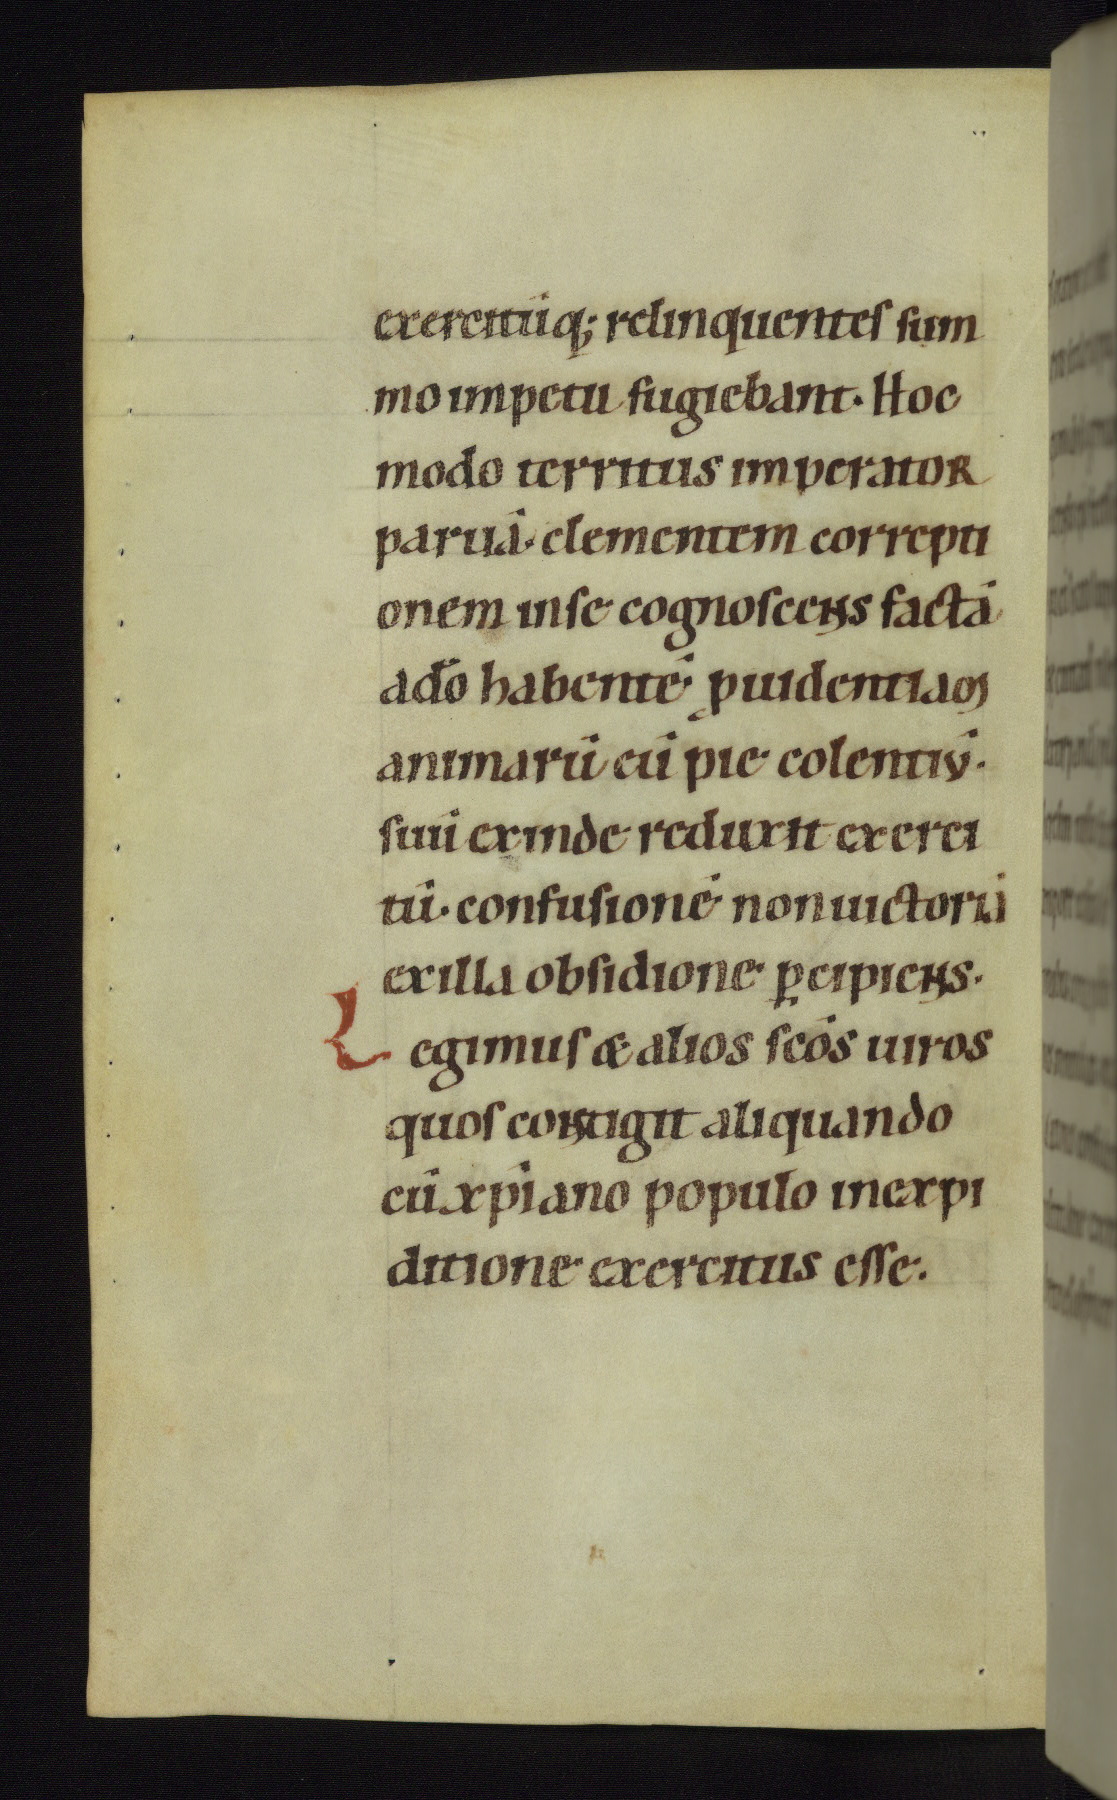 exercitūq; relinquentes sum
mo impetu fugiebant. Hoc
modo territus imperator
paruā. clementem correpti
onem in se cognoscens factā
a dō habentē ꝓuidentiam
animarū eū pie colentiū.
suū exinde reduxit exerci
tū. confusionē non uictoriā
ex illa obsidione ꝑcipiens.
Legimus & alios scōs uiros
quos contigit aliquando
cū xp̄iano populo in expi
ditione exercitus esse.